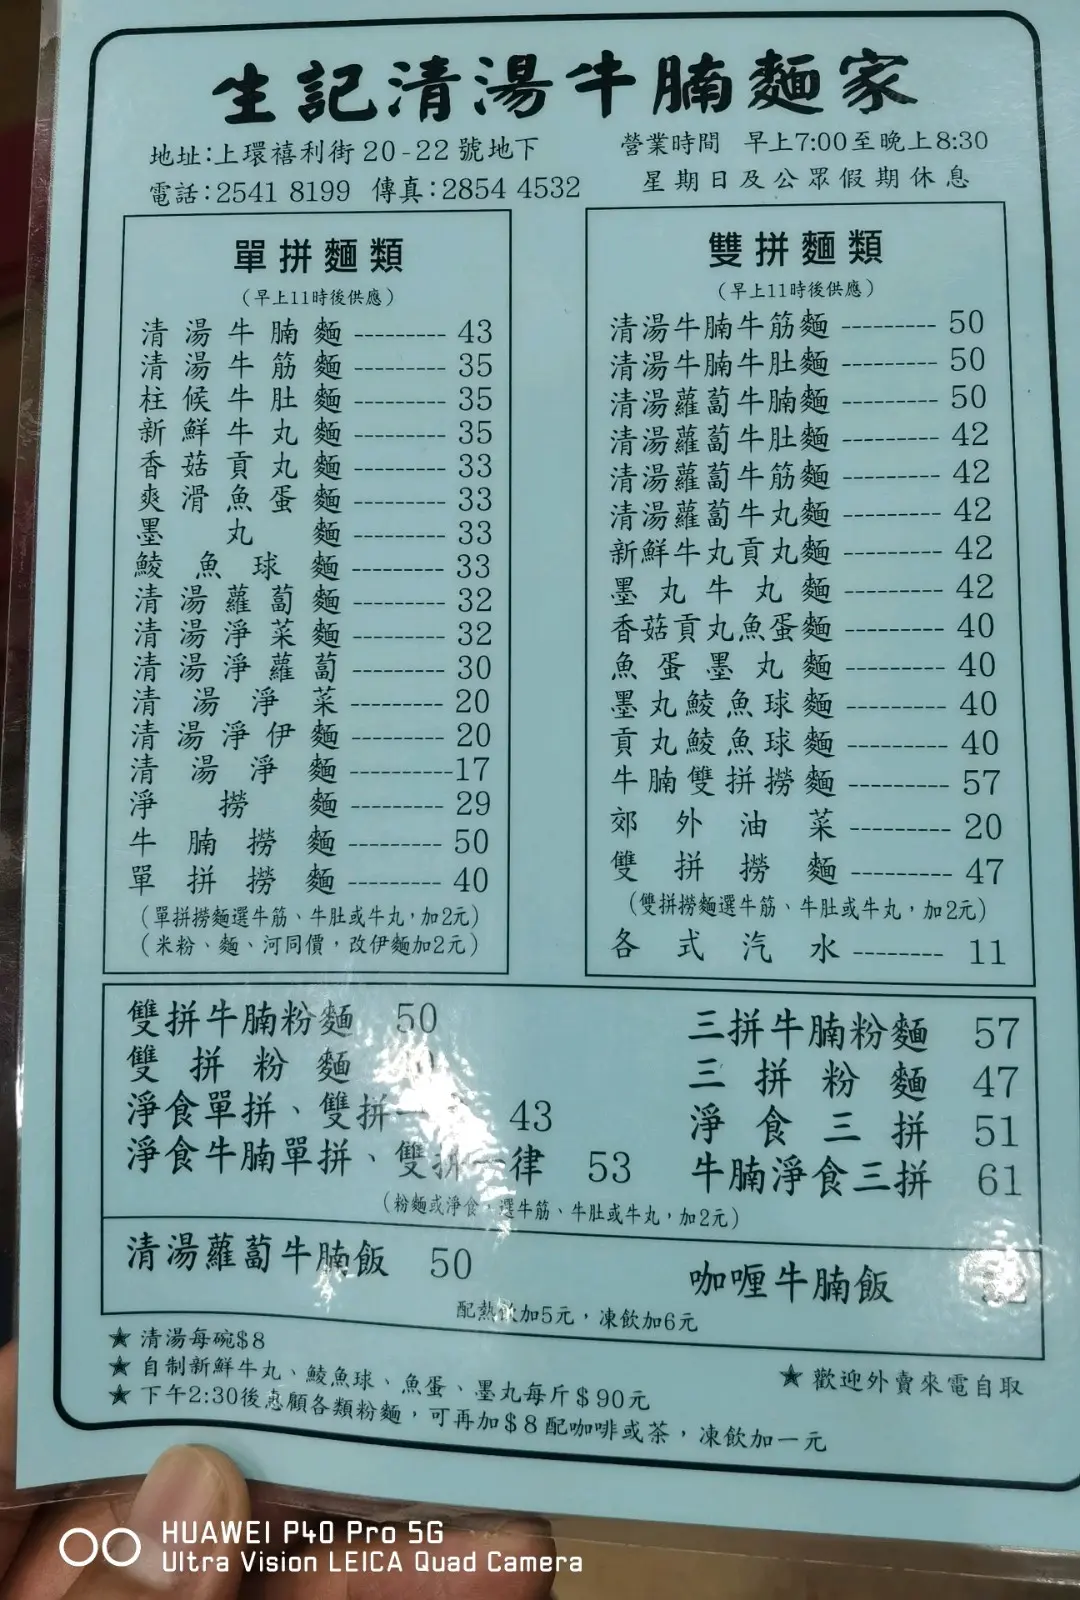 生記清湯牛腩麵家
地址:上環禧利街20-22號地下
電話:2541 8199 傳真:2854 4532
營業時間 早上7:00至晚上8:30
星期日及公眾假期休息
單拼麵類
（早上11時後供應）
清湯牛腩麵 --------- 43
清湯牛筋麵 --------- 35
柱候牛肚麵 --------- 35
新鮮牛丸麵 --------- 35
香菇貢丸麵 --------- 33
爽滑魚蛋麵 --------- 33
墨丸麵 --------- 33
鯪魚球麵 --------- 33
清湯蘿蔔麵 --------- 32
清湯淨菜麵 --------- 32
清湯淨蘿蔔 --------- 30
清湯淨菜 --------- 20
清湯淨伊麵 --------- 20
清湯淨麵 ----------17
淨撈麵 --------- 29
牛腩撈麵 --------- 50
單拼撈麵 --------- 40
（單拼撈麵選牛筋、牛肚或牛丸，加2元）
（米粉、麵、河同價，改伊麵加2元）
雙拼麵類
（早上11時後供應）
清湯牛腩牛筋麵 --------- 50
清湯牛腩牛肚麵 --------- 50
清湯蘿蔔牛腩麵 --------- 50
清湯蘿蔔牛肚麵 --------- 42
清湯蘿蔔牛筋麵 --------- 42
清湯蘿蔔牛丸麵 --------- 42
新鮮牛丸貢丸麵 --------- 42
墨丸牛丸麵 --------- 42
香菇貢丸魚蛋麵 --------- 40
魚蛋墨丸麵 --------- 40
墨丸鯪魚球麵 --------- 40
貢丸鯪魚球麵 --------- 40
牛腩雙拼撈麵 --------- 57
郊外油菜 --------- 20
雙拼撈麵 --------- 47
（雙拼撈麵選牛筋、牛肚或牛丸，加2元）
各式汽水 -------- 11
雙拼牛腩粉麵 50
雙拼粉麵
淨食單拼、雙拼一 43
淨食牛腩單拼、雙拼一律 53
三拼牛腩粉麵 57
三拼粉麵 47
淨食三拼 51
牛腩淨食三拼 61
（粉麵或淨食，選牛筋、牛肚或牛丸，加2元）
清湯蘿蔔牛腩飯 50
咖喱牛腩飯
配熱飲加5元，凍飲加6元
★ 清湯每碗$8
★ 自制新鮮牛丸、鯪魚球、魚蛋、墨丸每斤＄90元
★ 歡迎外賣來電自取
★ 下午2:30後惠顧各類粉麵，可再加＄8配咖啡或茶，凍飲加一元
HUAWEI P40 Pro 5G
Ultra Vision LEICA Quad Camera